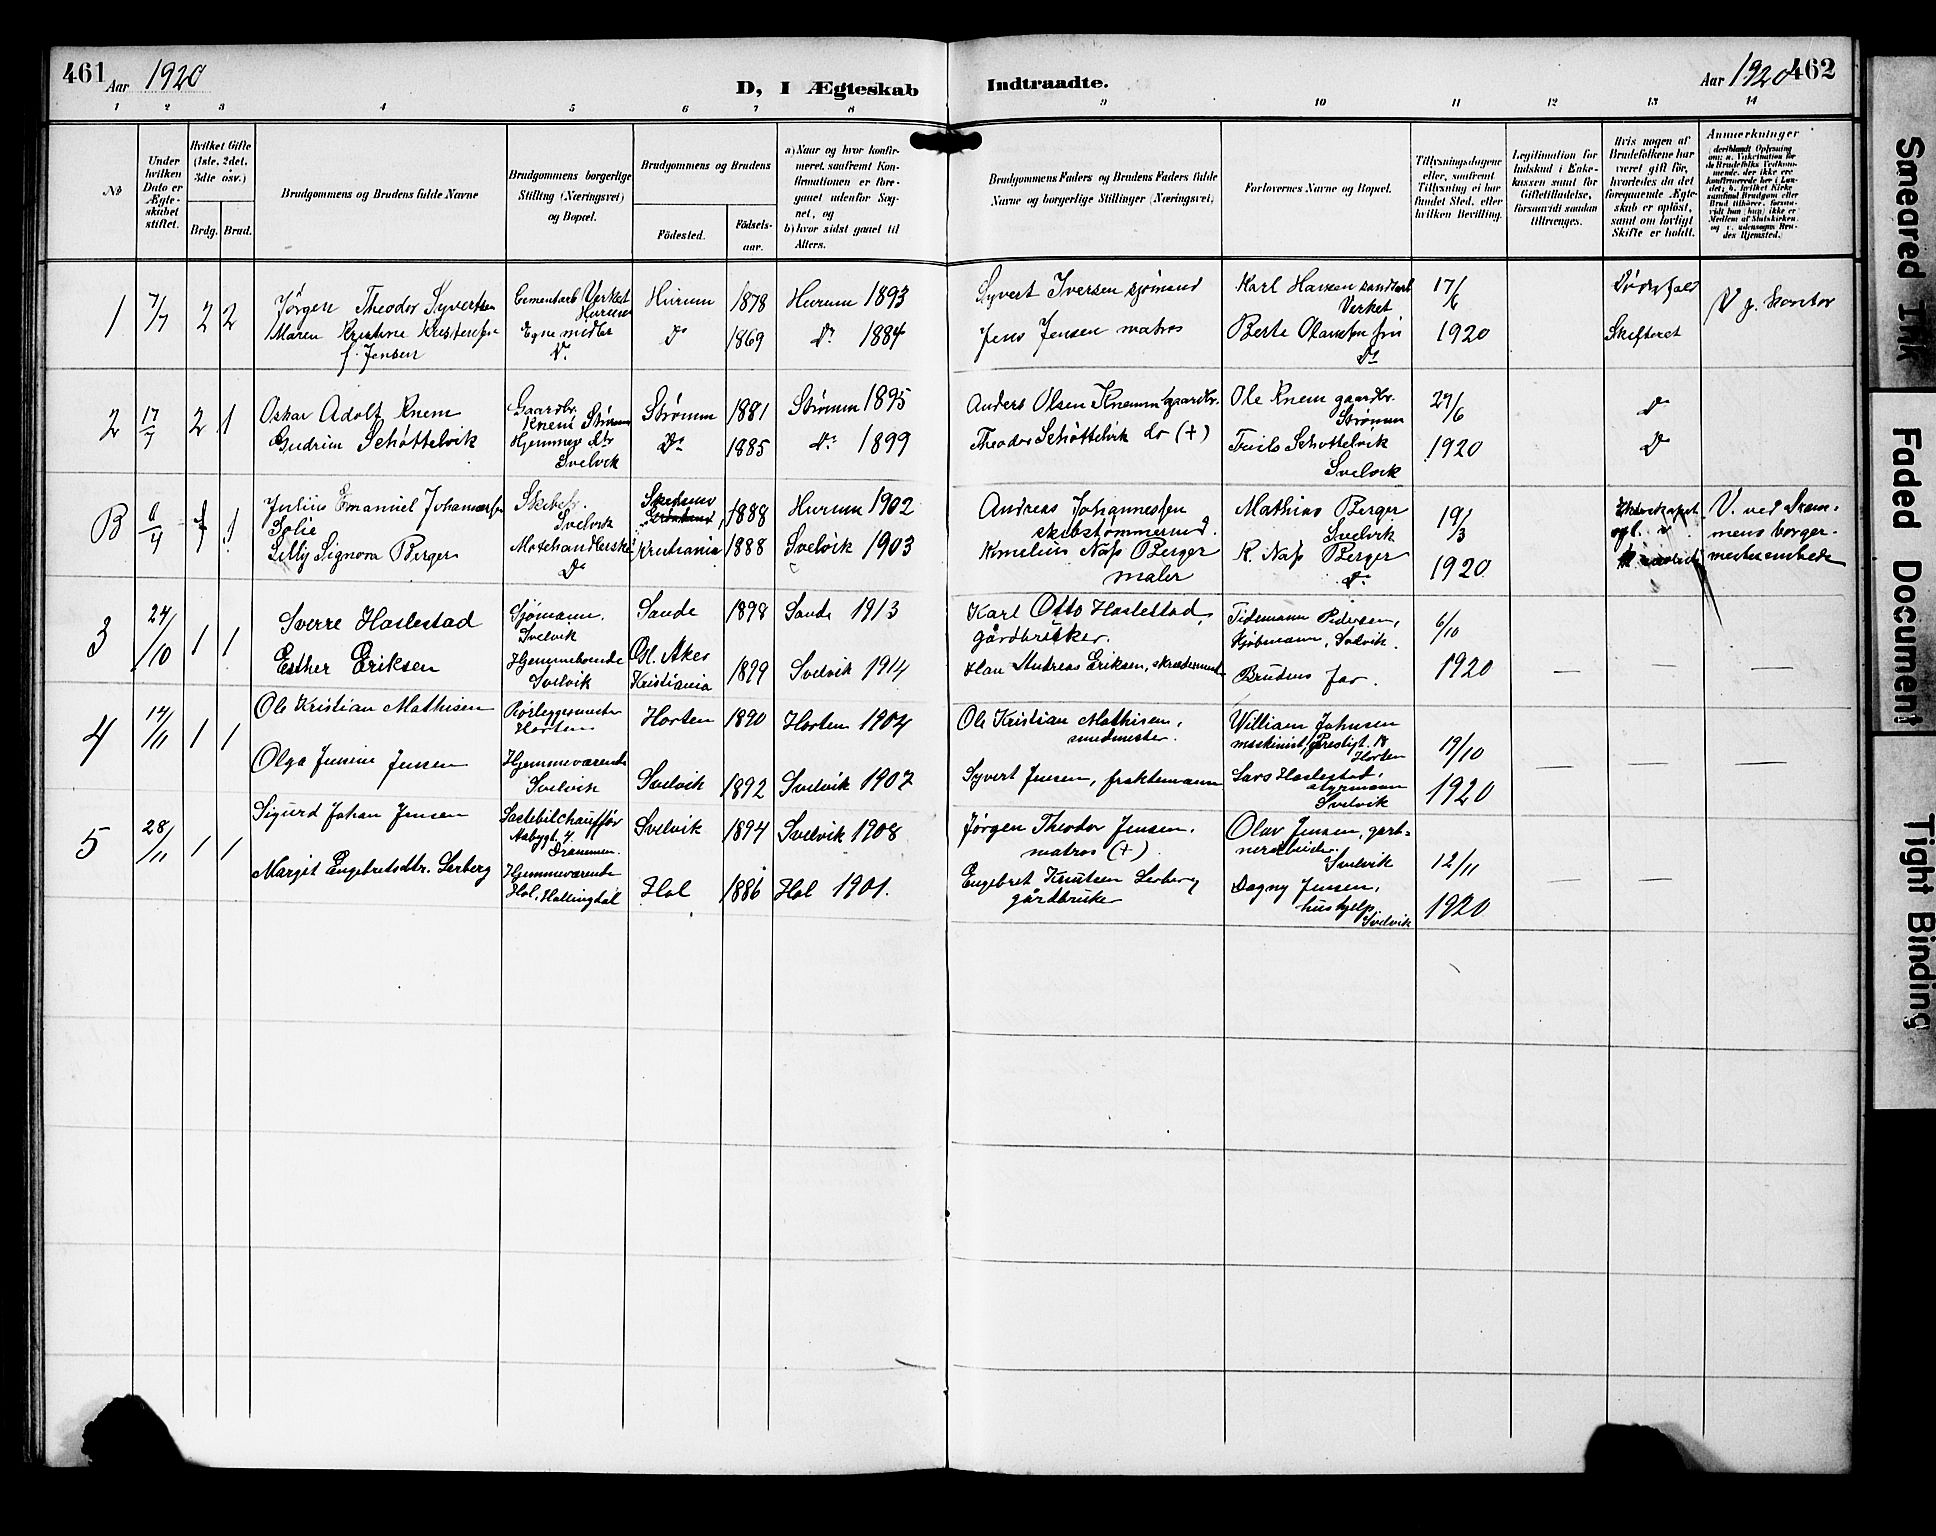 461 Aar 1920
D, I Ægteskab Indtraadte.
Aar 1920 462
1 2 3 4 5 6 7 8 9 10 11 12 13 14
No
Under hvilken Dato er Ægteskabet stiftet.
Hvilket Gifte (1ste, 2det, 3die osv.)
Brdg. Brud.
Brudgommens og Brudens fulde Navne
Brudgommens borgerlige Stilling (Næringsvei) og Bopæl.
Brudgommens og Brudens
Födested. Födsels-aar.
a) Naar og hvor konfirmeret, samfremt Konfirmationen er foregaaet udenfor Sognet, og
b) hvor sidst gaaet til Alters.
Brudgommens Faders og Brudens Faders fulde Navne og borgerlige Stillinger (Næringsvei)
Forlovernes Navne og Bopæl.
Tillysningsdagene eller, saafremt Tillysning ei har fundet Sted, efter hvilken Bevilling.
Legitimation for Indskud i Enkekassen samt for Giftetilladelse, forsaavidt saadan tiltrænges.
Hvis nogen af Brudefolkene har været gift før, hvorledes da det foregaaende Ægteskab er opløst, samt om lovligt Skifte er holdt.
Anmerkninger
1 7/7 2 2
Jörgen Theodor Syvertsen
Cementarb Verket Hurum
Hurum 1878 Hurum 1893
Syvert Iversen sjömand
Karl Hansen sandarb Verket
17/6 1920
Dödsfald
V. g. kontor
Maren Kristine Kristensen f. Jensen
Egne midler Do
Do 1869 Do 1884
Jens Jensen matros
Berte Olausen fru Do
Skifteret
2 17/7 2 1
Oskar Adolf Knem
Gaardbr. Knem Strömm
Strömm 1881 Strömm 1895
Anders Olsen Knemm gaardbr.
Ole Knem gaardbr. Strömm
27/6 1920
Do
Gudrun Schøttelvik
Hjemmev. dtr Svelvik
Do 1885 Do 1899
Theodor Schøttelvik do (+)
Truls Schøttelvik Svelvik
Do
B 6/4 1 1
Julius Emanuel Johannessen Solie
Svelvik
1888 Hurum 1902
Andreas Johannessen skibstømmermd.
Mathias Berger Svelvik
19/3 1920
V. ved Drammens borgermesterembede
Lilly Signora Berger
Motehandlerske Do
Kristiania 1888 Svelvik 1903
Kornelius Næss Berger maler
K. Næss Berger Do
3 24/10 1 1
Sverre Haslestad
Sjömann, Svelvik
Sande 1898 Sande 1913
Karl Otto Haslestad, gårdbruker.
Tidemann Pedersen, Kjöbmann, Svelvik.
6/10 1920
Esther Eriksen
Hjemmeboende Svelvik
Gl. Aker Kristiania 1899 Svelvik 1914
Hans Andreas Eriksen, skræderm
Brudens far.
— — —
4 14/11 1 1
Ole Kristian Mathisen
Rörleggermester Horten
Horten 1890 Horten 1904
Ole Kristian Mathisen, smedmester.
William Johnsen maskinist, Prestegt. 18 Horten
19/10 1920
Olga Jensine Jensen
Hjemmeværende Svelvik
Svelvik 1892 Svelvik 1907
Syvert Jensen, fraktemann
Lars Haslestad, styrmann Svelvik
— — —
5 28/11 1 1
Sigurd Johan Jensen
Lastebilchauffør Aabygt. 4 Drammen.
Svelvik 1894 Svelvik 1908
Jörgen Theodor Jensen, matros (+).
Olav Jensen, gartnerarbeider. Svelvik
12/11 1920
Margit Engebretsdtr. Lerberg
Hjemmeværende Hol, Hallingdal
Hol 1886 Hol 1901.
Engebret Knutsen Lerberg gårdbruker
Dagny Jensen, hushjelp Svelvik
— — —
Smeared Ink
Faded Document
Tight Binding